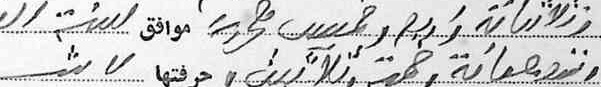 وثلاثمائة وأربع وخمسين هجرية موافق لسنة الف
وتسعمائة وخمسة وثلاثين وحرفتها